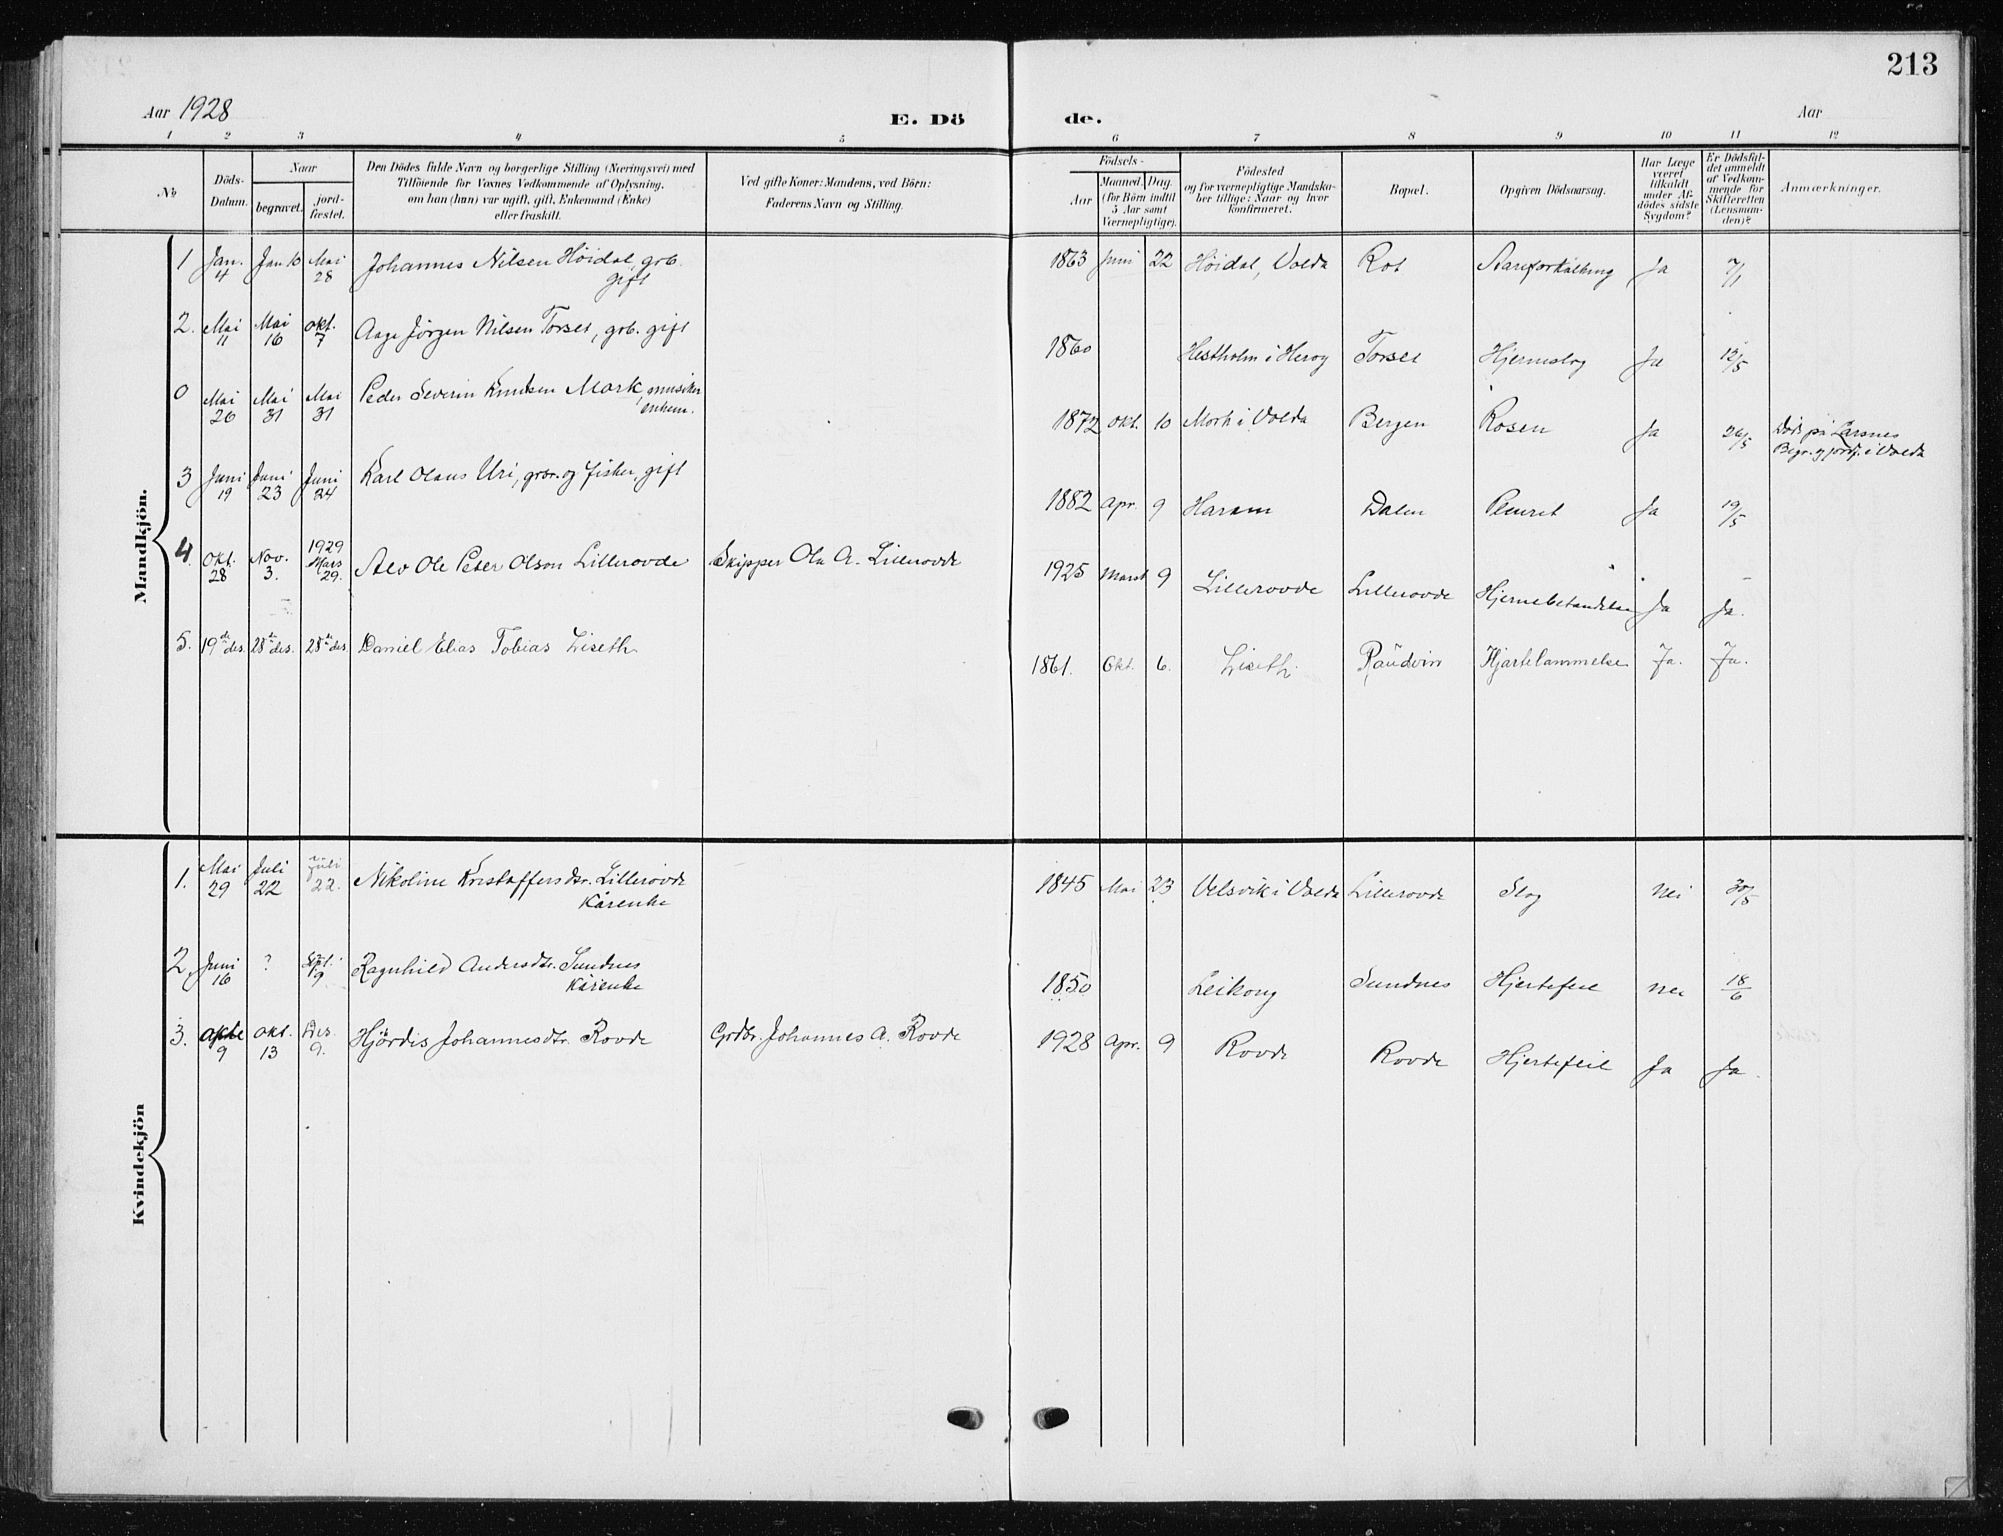 213
Aar 1928
E. Dö de.
Aar
1 2 3 4 5 6 7 8 9 10 11 12
No
Döds-Datum.
Naar
begravet.
jord-fæstet.
Den Dödes fulde Navn og borgerlige Stilling (Næringsvei) med
Tilföiende for Voxnes Vedkommende af Oplysning,
om han (hun) var ugift, gift, Enkemand (Enke)
eller fraskilt.
Ved gifte Koner: Mandens, ved Börn:
Faderens Navn og Stilling.
Födsels-
Aar
Maaned. Dag.
(for Börn indtil
5 Aar samt
Værnepligtige).
Födested
og for værnepligtige Mandska-
ber tillige: Naar og hvor
konfirmeret.
Bopæl.
Opgiven Dödsaarsag.
Har Læge
været
tilkaldt
under Af-
dödes sidste
Sygdom?
Er Dödsfal-
det anmeldt
af Vedkom-
mende for
Skifteretten
(Lensman-
den)?
Anmærkninger.
Mandkjön.
1 Jan. 4 Jan 10 Mai 28 Johannes Nilsen Höidal, grb. gift 1863 Juni 22 Höidal, Volda Rot Aareforkalkning Ja 7/1
2. Mai 11 Mai 16 Okt. 7 Aage Jörgen Nilsen Torset, grb. gift 1860 Hestholm i Heröy Torset Hjerneslag Ja 12/5
0 Mai 26 Mai 31 Mai 31 Peder Severin Knudsen Mark, musiker enkem. 1872 Okt. 10 Mork i Volda Bergen Rosen Ja 26/5 Död på Larsnes
Begr. og jordf. i Volda
3 Juni 19 Juni 23 Juni 24 Karl Olaus Uri, grbr. og fisker, gift 1882 Apr. 9 Haram Dalen Pleurit Ja 19/5
4. Okt. 28 Nov. 3. 1929 Mars 29. Alv Ole Peter Olson Lillerovde Skipper Ola A. Lillerovde 1925 Marst 9 Lillerovde Lillerovde Hjernebetendelse Ja Ja.
5. 19de des. 28de des. 28de des. Daniel Elias Tobias Liseth 1861. Okt. 6. Liseth Raudvin Hjartelammelse Ja. Ja.
Kvindekjön
1. Mai 29 Juli 22 Juli 22. Nikoline Kristoffersdtr. Lillerovde Kårenke 1845 Mai 23 Velsvik i Volda Lillerovde Slag Nei 30/5
2. Juni 16 ? Sept. 9 Ragnhild Andersdtr. Sundnes Kårenke 1850 Leikong Sundnes Hjertefeil Nei 18/6
3. 9 Okt. 13 Des. 9. Hjördis Johannesdtr. Rovde Grdbr. Johannes A. Rovde 1928 Apr. 9 Rovde Rovde Hjertefeil Ja Ja.